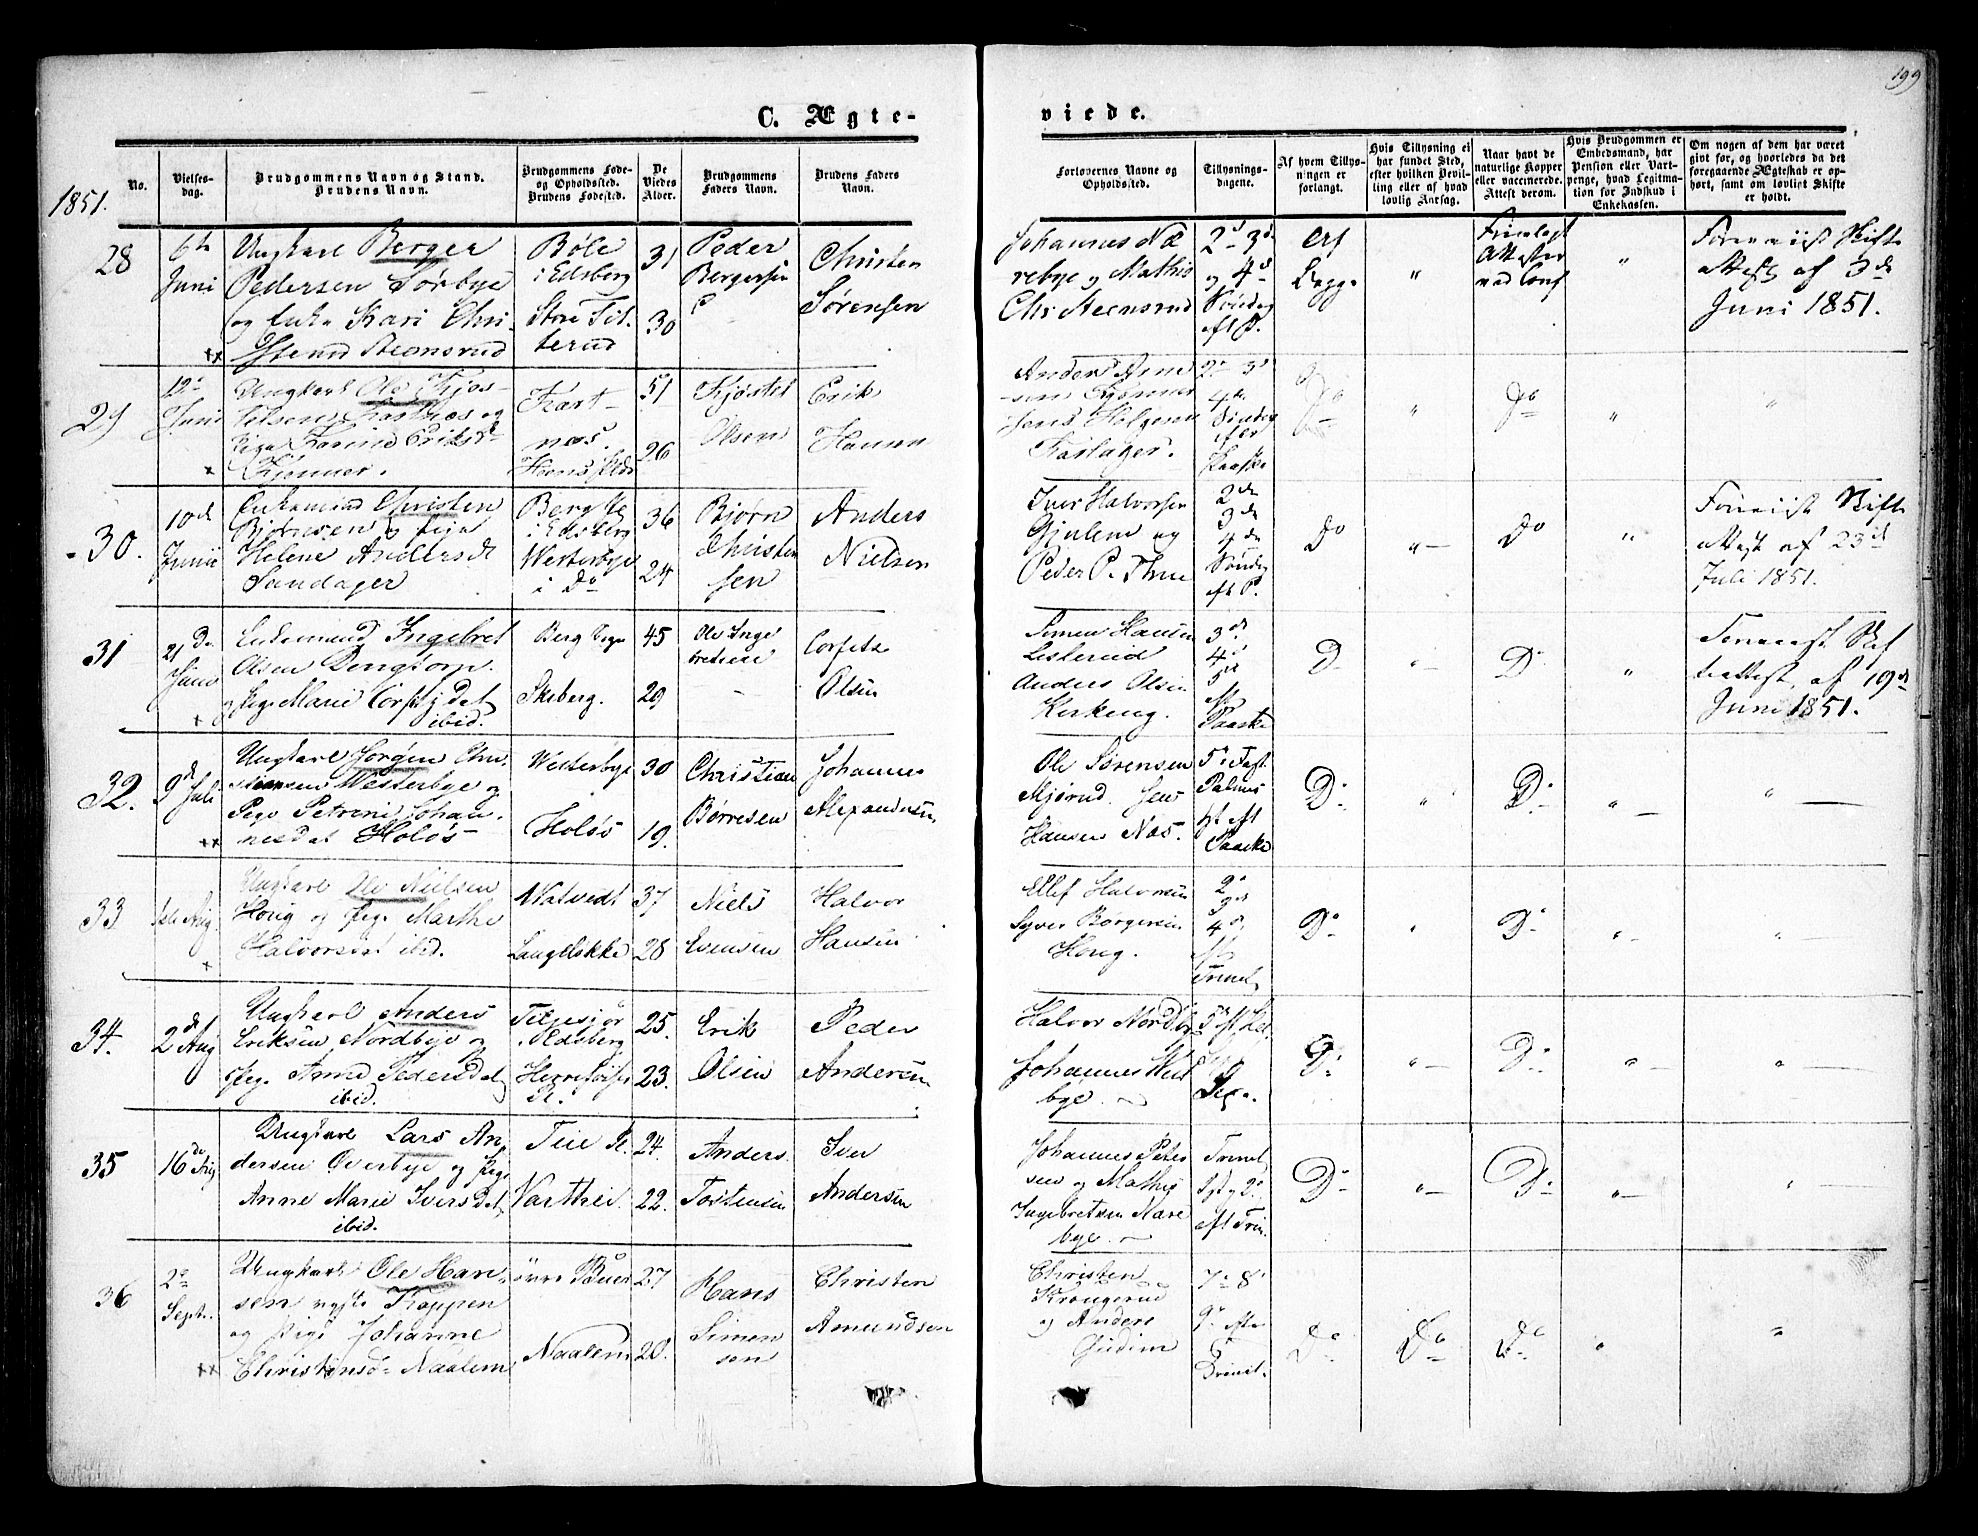 199
C. Ægte-
viede.
1851.
No.
Vielses-
dag.
Brudgommens Navn og Stand.
Brudens Navn.
Brudgommens Føde-
og Opholdssted.
Brudens Fødested.
De
Viedes
Alder.
Brudgommens
Faders Navn.
Brudens Faders
Navn.
Forlovernes Navne og
Opholdssted.
Tillysnings-
dagene.
Af hvem Tillys-
ningen er
forlangt.
Hvis Tillysning ei
har fundet Sted,
efter hvilken Bevil-
ling eller af hvad
lovlig Aarsag.
Naar havt de
naturlige Kopper
eller vaccinerede.
Attest derom.
Hvis Brudgommen er
Embedsmand, har
Pension eller Vart-
penge, hvad Legitima-
tion for Indskud i
Enkekassen.
Om nogen af dem har været
givt før, og hvorledes da det
foregaaende Ægteskab er op-
hørt, samt om lovligt Skifte
er holdt.
28
6te
Juni
Ungkarl Berger
Pedersen Sørbye
og Enke Kari Chri-
stensd Steensrud
Böle
i Edsberg
Store Tit-
terud
31
30
Peder
Bergersen
Christen
Sørensen
Johannes Næ
rebye og Mathis
Chr Steensrud
2d 3de
og 4de
Søndag
eft P.
Begge
"
Forelagt
Attester
ved Conf
"
Foreviist Skifte
attest af 3de
Juni 1851.
29
12te
Juni
Ungkarl Ole Kjøs-
telsen Kartnæs og
Pige Eriksd
Kjønner.
Kart-
næs.
51
26
Kjøstel
Olsen
Erik
Hansen
Anders Arne
sen Kjønner
Jens Helgesen
Farlager.
2de 3de
4de
Søndag
efter
Paaske
Do
"
Do
"
"
30.
10de
Junii
Enkemand Christen
Bjørnsen og Pige
Helene Andersdt
Sandager
i Edsberg
Westerbye
i Do
36
24
Bjørn
Christen
sen
Anders
Nielsen
Iver Halvorsen
Gjulem og
Peder P. Thue
2de
3de
4de
Søndag
eft P.
Do
"
Do
"
Foreviist Skifte
attest af 23de
Juli 1851.
31
21de
Juni
Enkemand Ingebret
Olsen Dengtorp
Pige Marie Corfitzdet
ibid.
Berg
Skiberg.
45
29
Ole Inge
bretsen
Corfitz
Olsen
Simen Hansen
Listerud
Anders Olsen
Kirkeng.
3de
4de
5te
eft
Paaske
Do
"
Do
"
Foreviist Skif
teattest, af 19de
Juni 1851.
32.
9de Juli
Ungkarl Jørgen Chri-
stiansen Westerbye og
Pige Petrine Johan-
nesdat Holøs
Westerbye
Holøs
30
19.
Christian
Børresen
Johannes
Alexandersen
Ole Sørensen
Mjørud. Jens
Hansen Næs.
5te Fast
Palmes
eft
Paaske
Do
"
Do
"
"
33
Ungkarl Ole Nielsen
Houg og Pige Marthe
Halvorsdt ibid.
Natvedt
Langeløkke
37
28
Niels
Evensen
Halvor
Hansen
Ellef Halvorsen
Syver Børgersen
Houg.
2de
3de
4de
eft
Trinit.
Do
"
Do
"
"
34.
2de Aug
Ungkarl Anders
Eriksen Nordbye og
Pige Anne Pedersdat
ibid.
i Edsberg
25.
23.
Erik
Olsen
Peder
Andersen
Halvor Nordby
Johannes West
bye
Do
"
Do
"
"
35
16de Aug
Ungkarl Lars An-
dersen Øverbye og Pige
Anne Marie Iversdat
ibid.
Teie
Varthei.
24.
22.
Anders
Tostensen
Iver
Andersen
Johannes Peter
sen og Mathis
Ingebretsen Nære
bye
Trinit.
eft Trin.
Do
"
Do
"
"
36
2de
Septr.
Ungkarl Ole Han-
sen Koppen
og Pige Johanne
Christensd Naalem
övre Buer
Naalem
27
20.
Hans
Simen
sen
Christen
Amundsen
Christen
Krøngerud
og Anders
Gudim
7de 8de
9de efter
Trinit.
Do
Do
Do
"
"